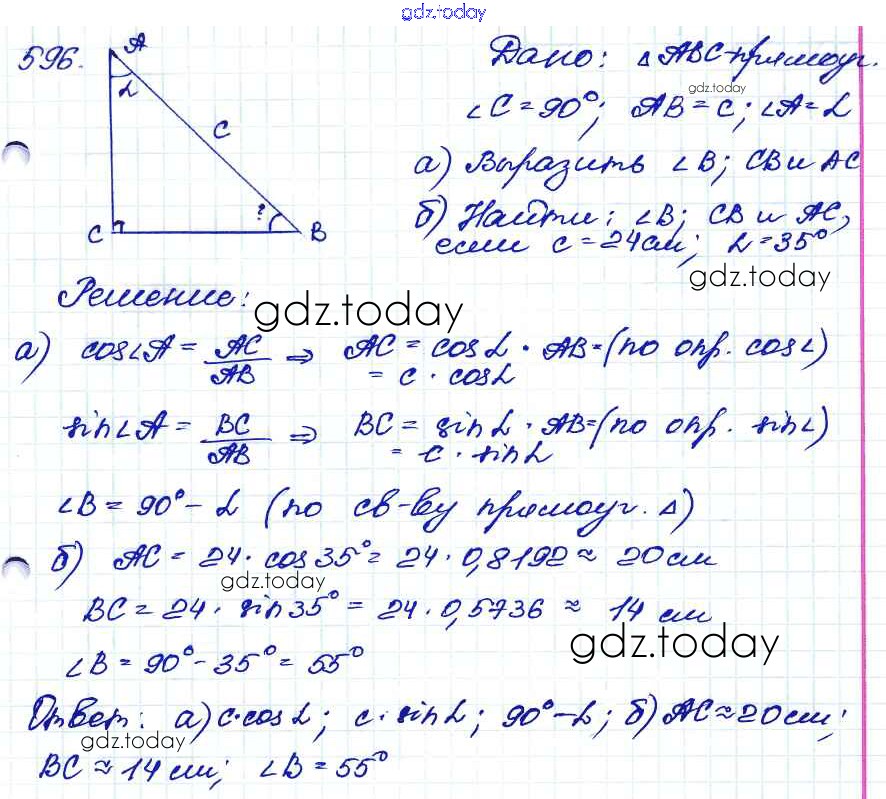 gdz.today
596.
A
α
c
C
?
B
Дано: △ABC-прямоуг.
gdz.today
∠C=90°; AB=c; ∠A=α
а) Выразить ∠B; CB и AC
б) Найти: ∠B; CB и AC,
если c=24см; α=35°
gdz.today
Решение:
gdz.today
а) cos∠A = AC/AB ⇒ AC = cosα · AB=(по опр. cos∠)
= c · cosα
sin∠A = BC/AB ⇒ BC = sinα · AB=(по опр. sin∠)
= c · sinα
∠B = 90°- α (по св-ву прямоуг. △)
б) AC = 24· cos35°= 24 · 0,8192 ≈ 20см
gdz.today
BC = 24 · sin35° = 24 · 0,5736 ≈ 14 см
gdz.today
∠B = 90°-35°= 55°
Ответ: а) c·cosα; c·sinα; 90°-α; б) AC≈20см;
gdz.today
BC≈14см; ∠B=55°